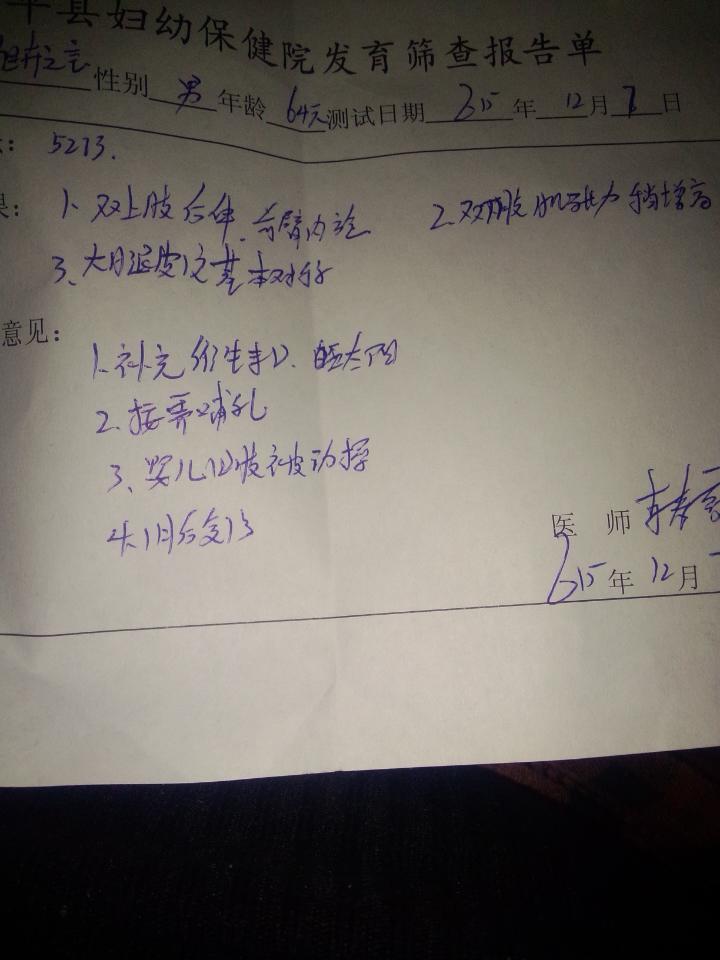 平县妇幼保健院发育筛查报告单
性别 男 年龄 64天 测试日期 2015 年 12 月 7 日
: 5273.
: 1. 双上肢后伸、前臂内旋 2. 双下肢肌张力稍增高
3. 大腿皮纹基本对称
意见:
1. 补充维生素D、晒太阳
2. 按需哺乳
3. 婴儿四肢被动操
4. 1月后复诊
医 师
2015 年 12 月 7